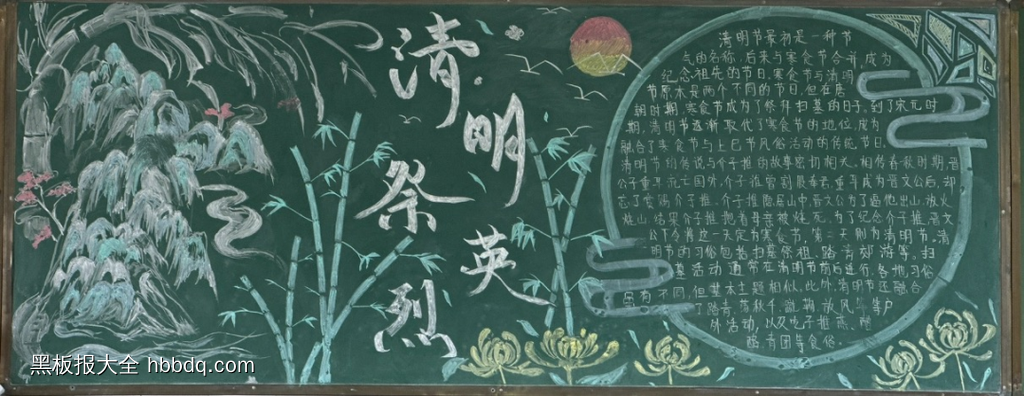 清明祭英烈
清明节最初是一种节
气的名称,后来与寒食节合并,成为
纪念祖先的节日.寒食节与清明
节原本是两个不同的节日,但在唐
朝时期,寒食节成为了祭拜扫墓的日子,到了宋元时
期,清明节逐渐取代了寒食节的地位,成为
融合了寒食节与上巳节风俗活动的传统节日.
清明节的传说与介子推的故事密切相关。相传春秋时期,晋
公子重耳流亡国外,介子推曾割股奉君,重耳成为晋文公后,却
忘了赏赐介子推.介子推隐居山中,晋文公为了逼他出山,放火
烧山,结果介子推抱着母亲被烧死.为了纪念介子推,晋文
公下令将这一天定为寒食节,第二天则为清明节.清
明节的习俗包括扫墓祭祖、踏青郊游等。扫
墓活动通常在清明节前后进行,各地习俗
虽有不同,但基本主题相似.此外,清明节还融合
了踏青、荡秋千、蹴鞠、放风筝等户
外活动,以及吃子推燕、
青团等食俗.
黑板报大全 hbbdq.com